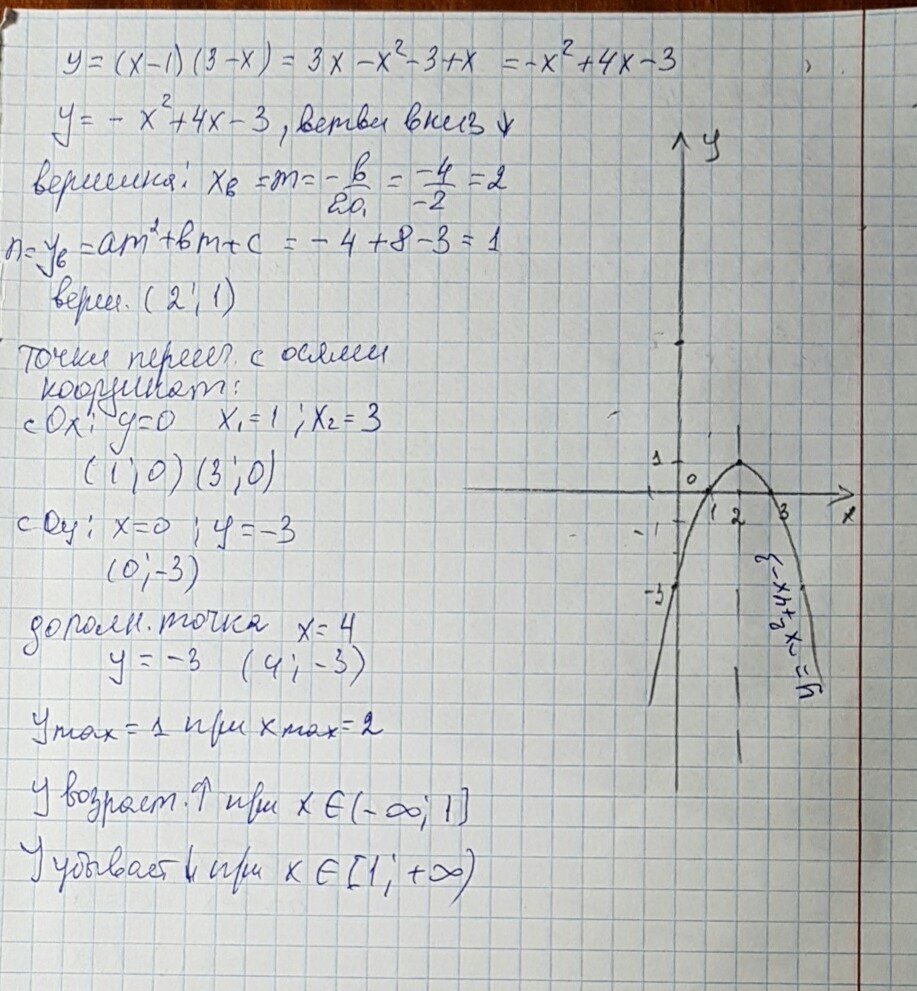 y = (x-1)(3-x) = 3x - x² - 3 + x = -x² + 4x - 3
y = - x² + 4x - 3, ветви вниз ↓
вершина: xв = m = -b/2a = -4/-2 = 2
n = yв = am² + bm + c = - 4 + 8 - 3 = 1
верш. (2; 1)
точки перес. с осями
координат:
с Ox: y=0 x₁ = 1; x₂ = 3
(1; 0) (3; 0)
с Oy: x=0; y = -3
(0; -3)
дополн. точка x = 4
y = -3 (4; -3)
y max = 1 при x max = 2
y возраст. ↑ при x ∈ (-∞; 1]
y убывает ↓ при x ∈ [1; +∞)
y
1
0
1 2 3
x
-1
-3
y = -x² + 4x - 3